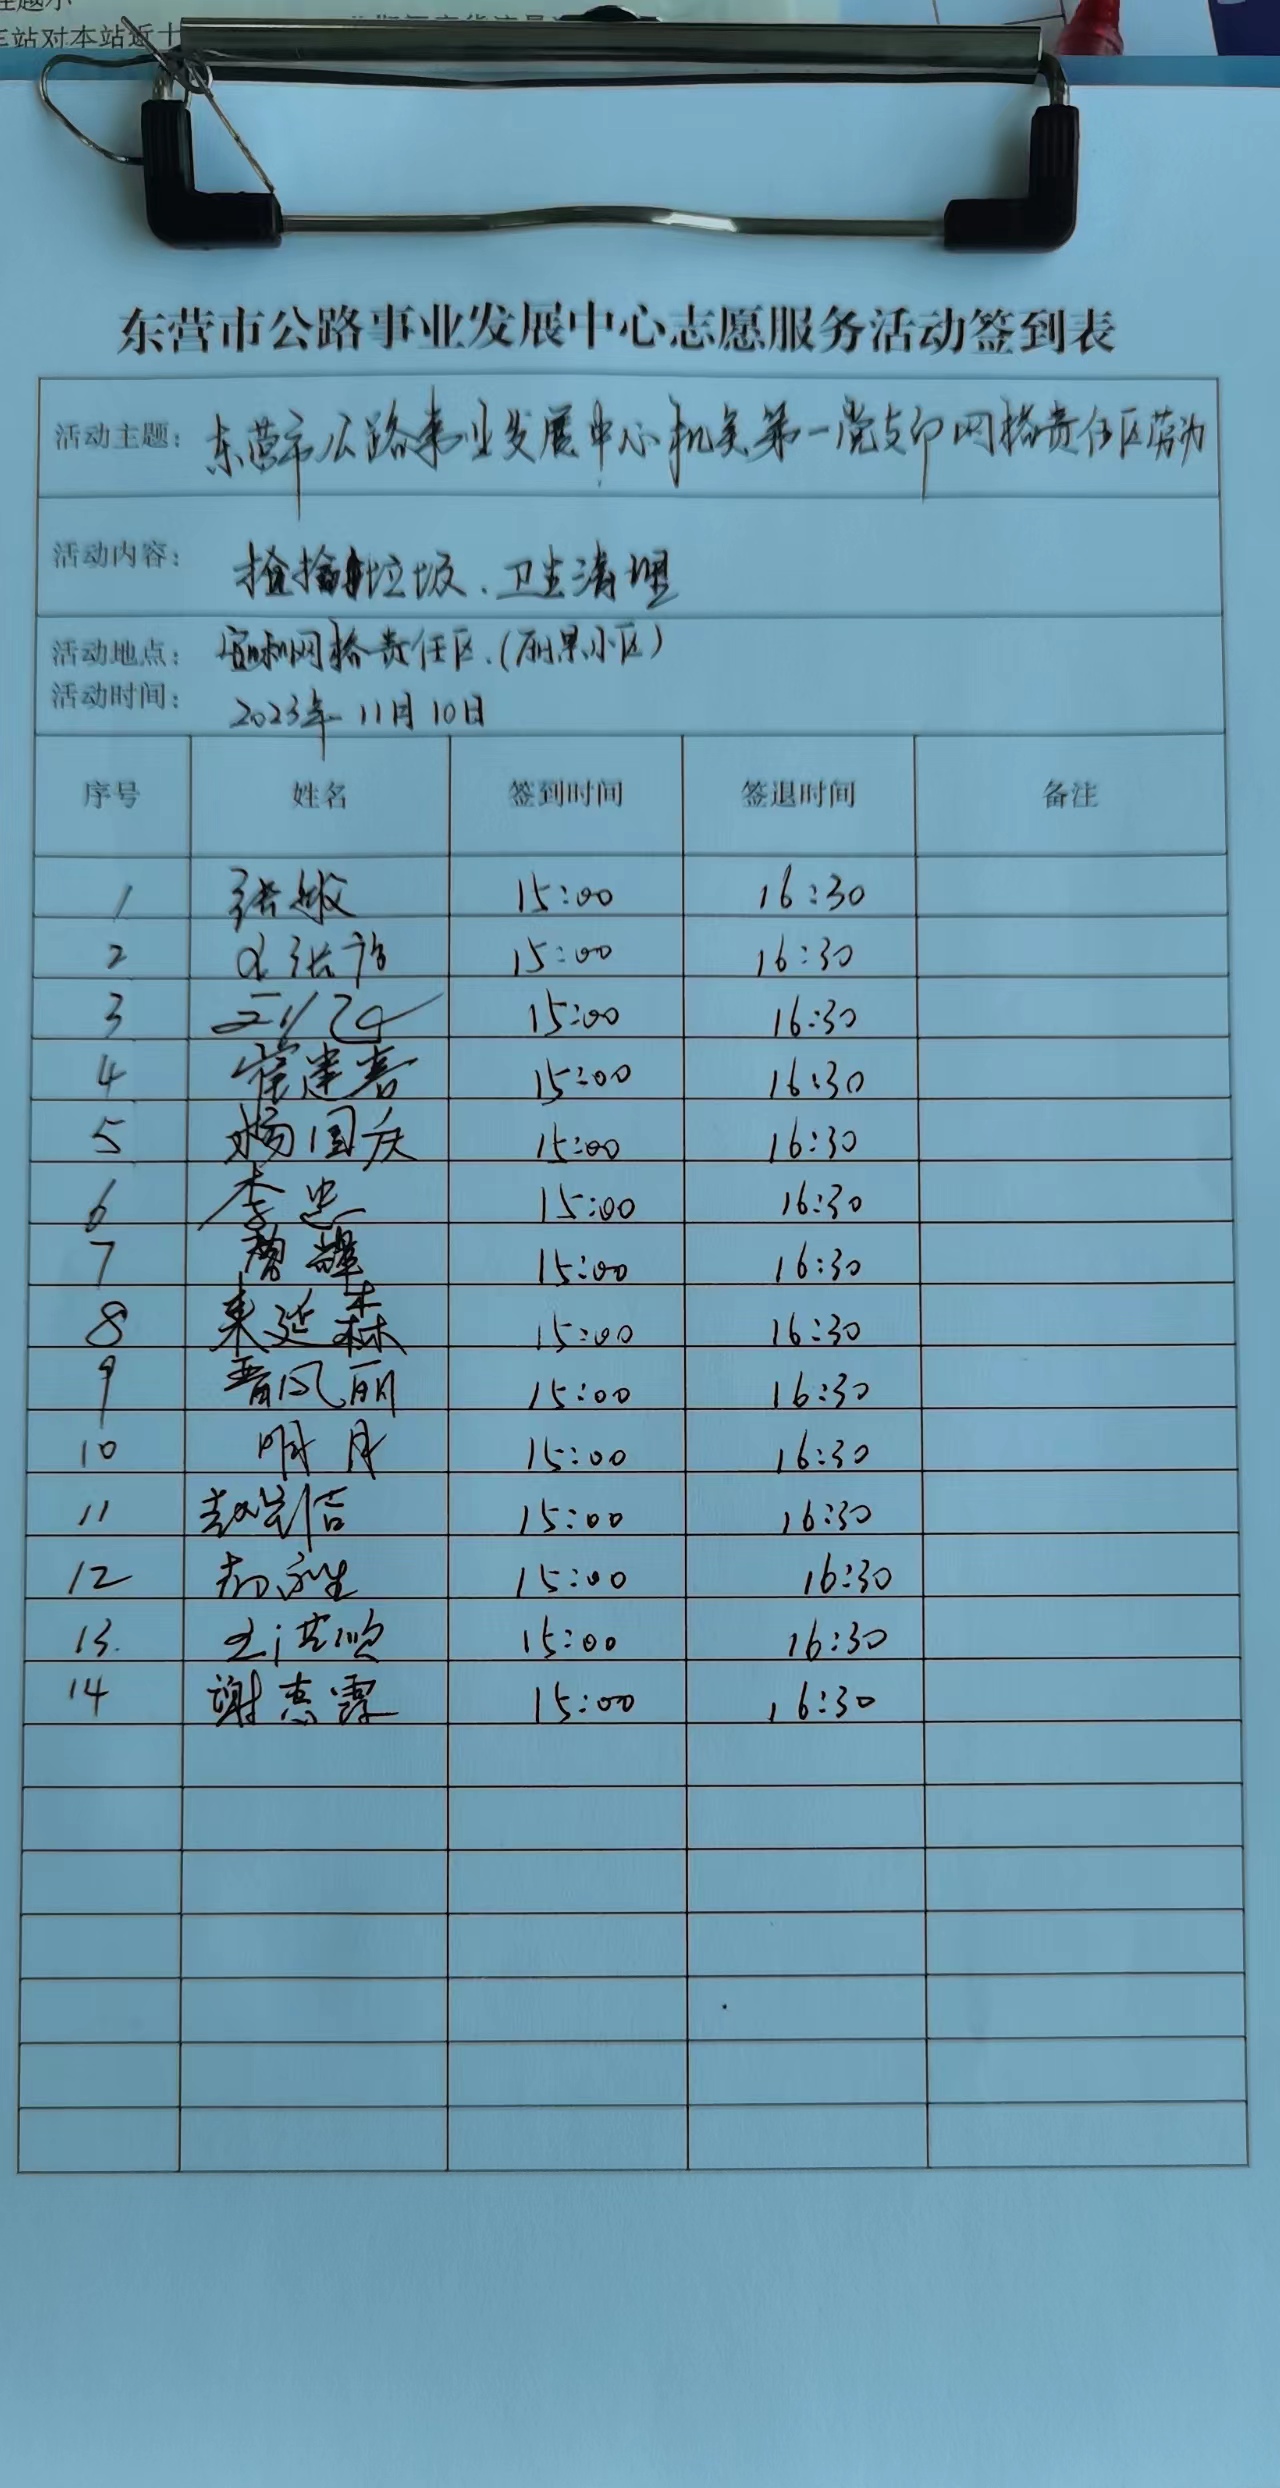 车站对本站近十
东营市公路事业发展中心志愿服务活动签到表
活动主题: 东营市公路事业发展中心机关第一党支部网格责任区劳动
活动内容: 捡拾垃圾、卫生清理
活动地点: 网格责任区、(丽景小区)
活动时间: 2023年11月10日
序号 姓名 签到时间 签退时间 备注
1 张敏 15:00 16:30
2 15:00 16:30
3 15:00 16:30
4 崔建春 15:00 16:30
5 杨国庆 15:00 16:30
6 李忠 15:00 16:30
7 15:00 16:30
8 来延森 15:00 16:30
9 晋风丽 15:00 16:30
10 明月 15:00 16:30
11 15:00 16:30
12 15:00 16:30
13. 15:00 16:30
14 谢惠霖 15:00 16:30